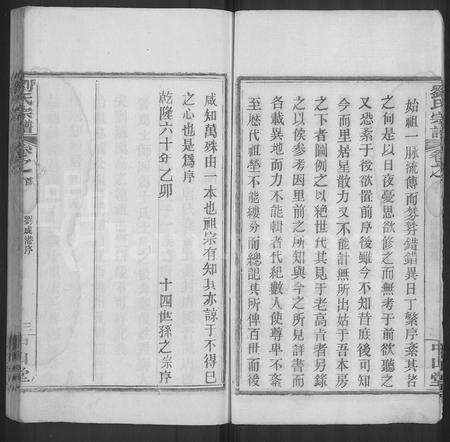 劉氏宗譜 卷之
中山堂
始祖一脈流傳而芬芬錯錯異日丁繁序紊其咎
之何是以日夜憂思欲修之而無考于前欲聽之
又恐紊于後欲置前序後雖今不知昔庶後可知
今而里居星散力又不能計無所出姑于吾本房
之下者圖例之以絕世代其見于老高肯者另錄
之以俟參考因里前之所知與今之所見詳書而
各載異地而力不能輯者代紀數人使尊卑不紊
至歷代祖塋不能縷分而總記其所俾百世而後
咸知萬殊由一本也祖宗有知其亦諒于不得已
之心也是為序
乾隆六十年乙卯
十四世孫之宗序
劉氏宗譜 卷之首
劉成港序
三
中山堂